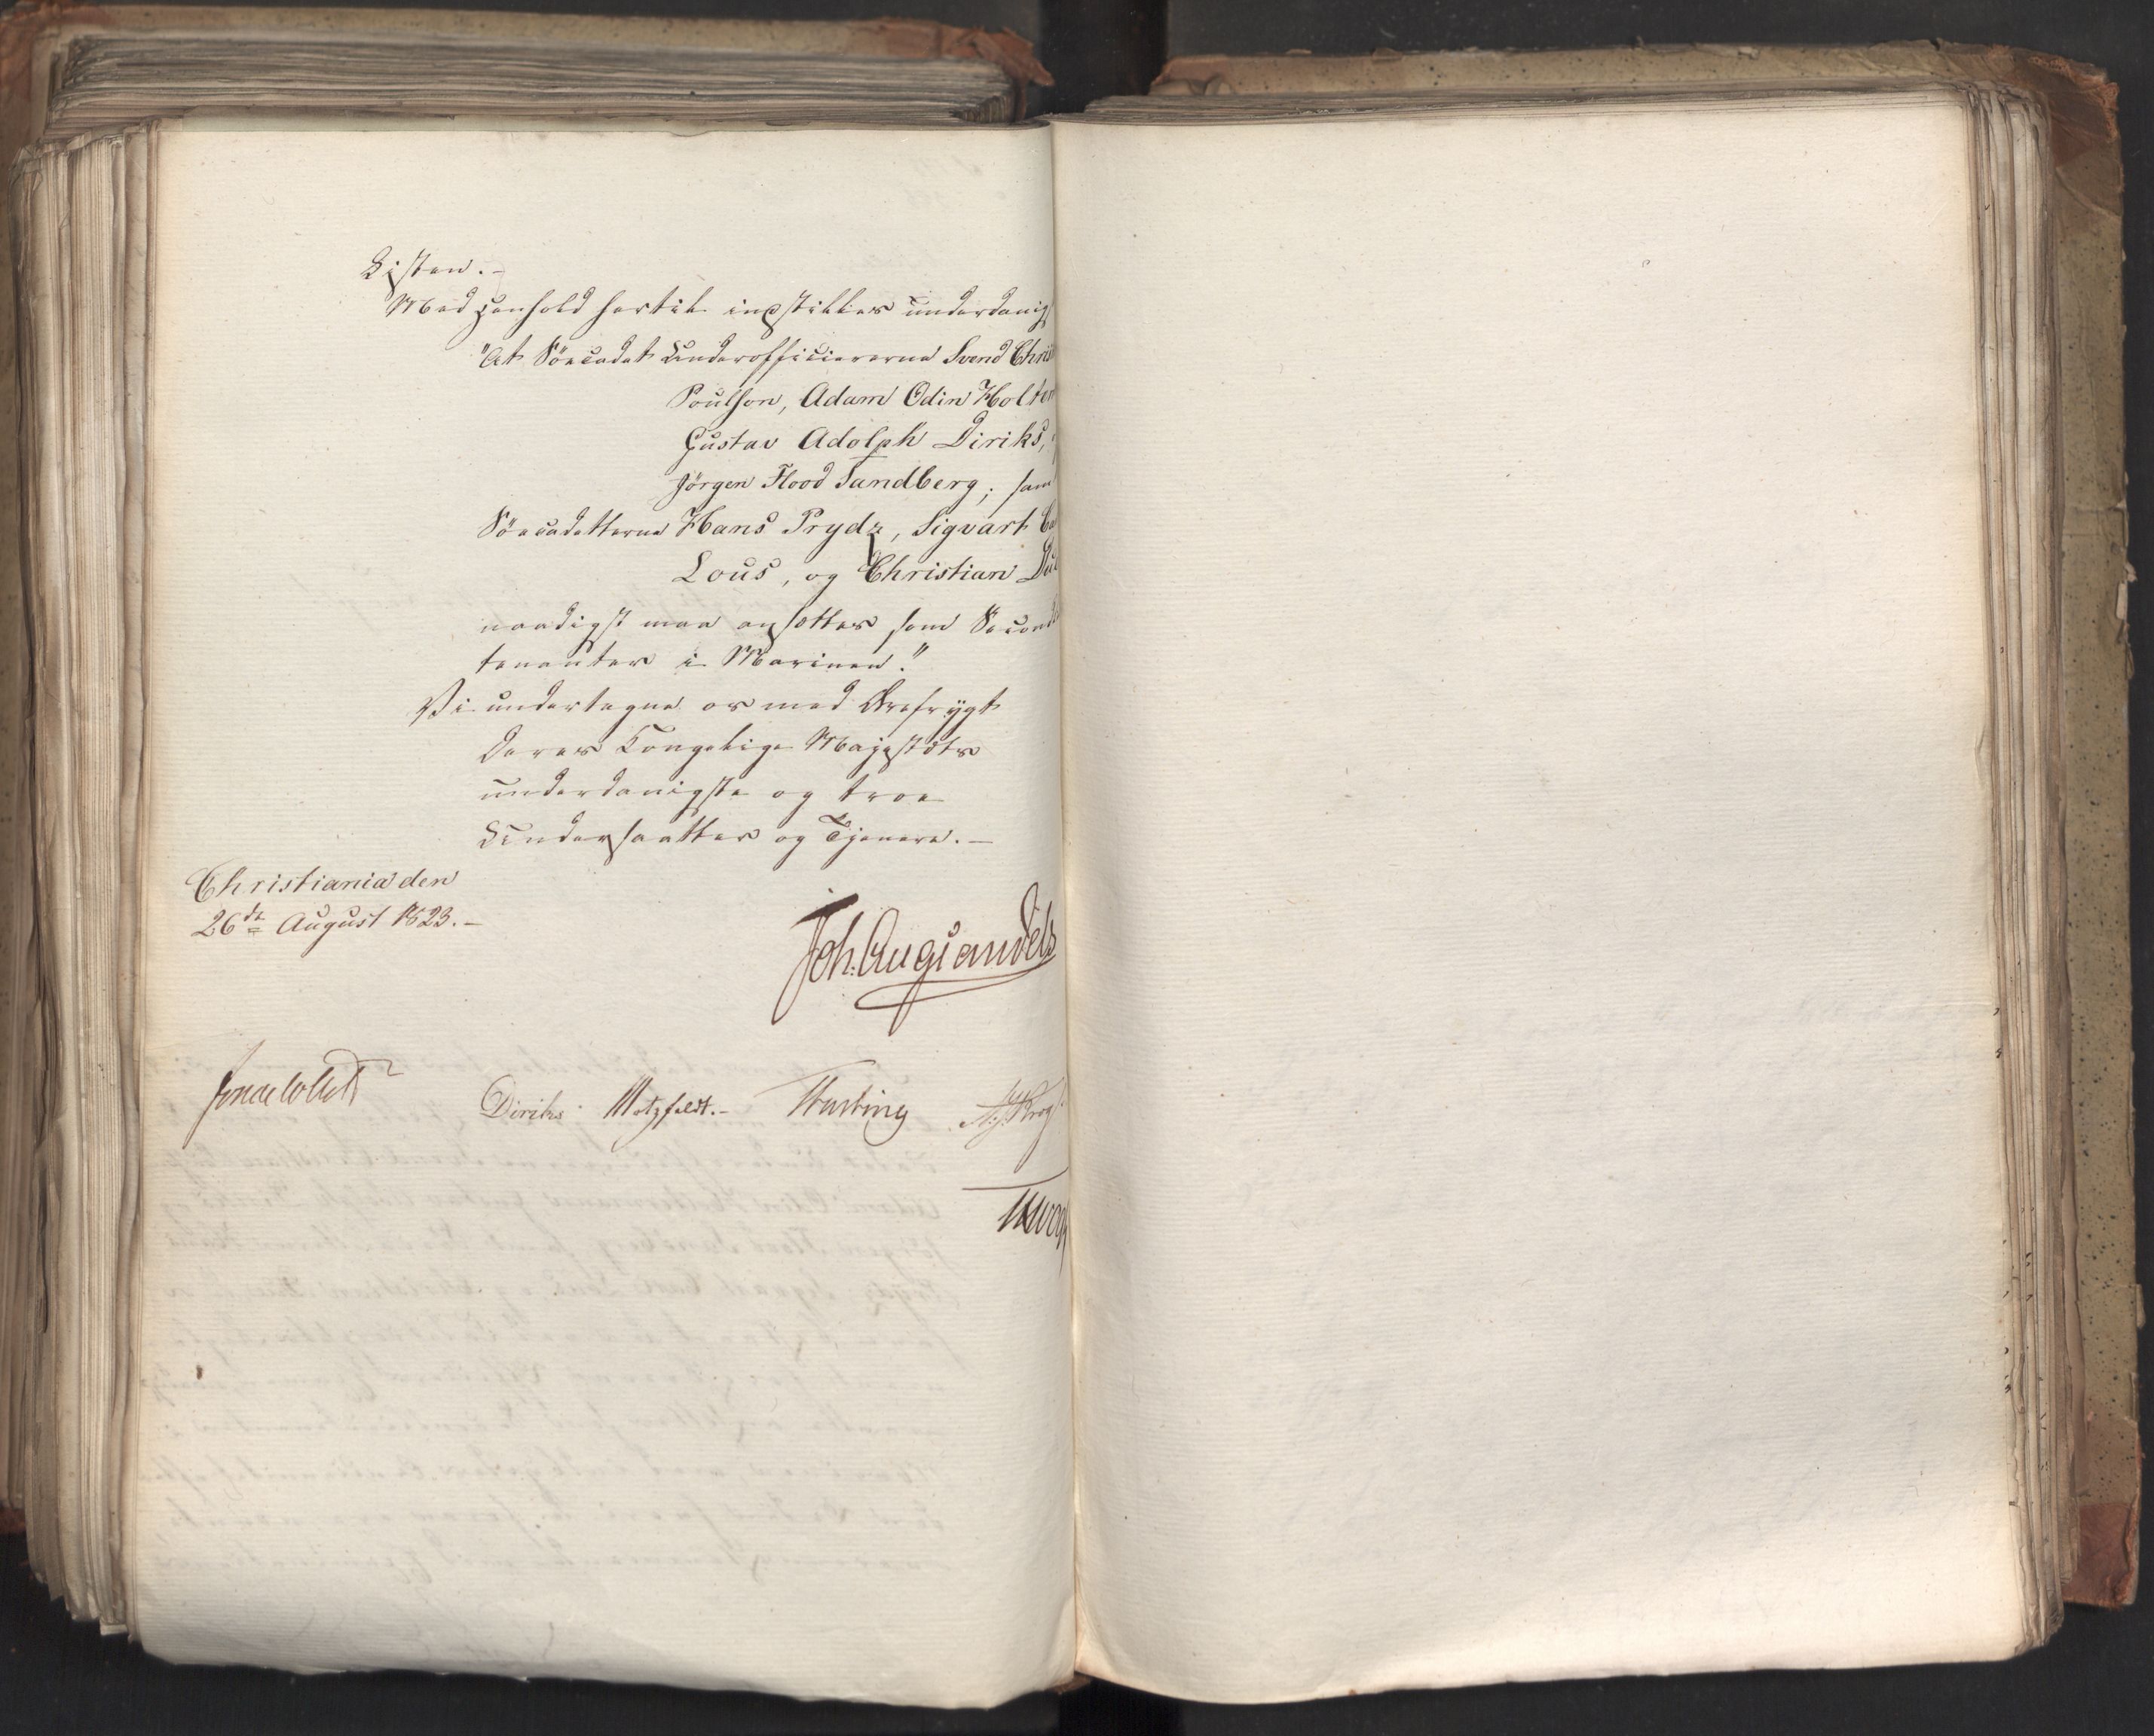 Listen. -
Med Henhold hertil indstilles underdanigst
"At Söecadet Underofficiererne Svend Chris
Poulson, Adam Odin Holter
Gustav Adolph Diriks,
Jörgen Flood Sandberg; samt
Söecadetterne Hans Prydz, Sigvart Ca
Lous, og Christian Due
naadigst maa ansættes som Second
tenanter i Marinen."
Vi undertegne os med Ærefrygt
Deres Kongelige Majestæts
underdanigste og troe
Undersaatter og Tjenere. -
Christiania den
26de August 1823. -
Joh: Aug: Sandels
Jonas Collett
Diriks. Motzfeldt. - Krog